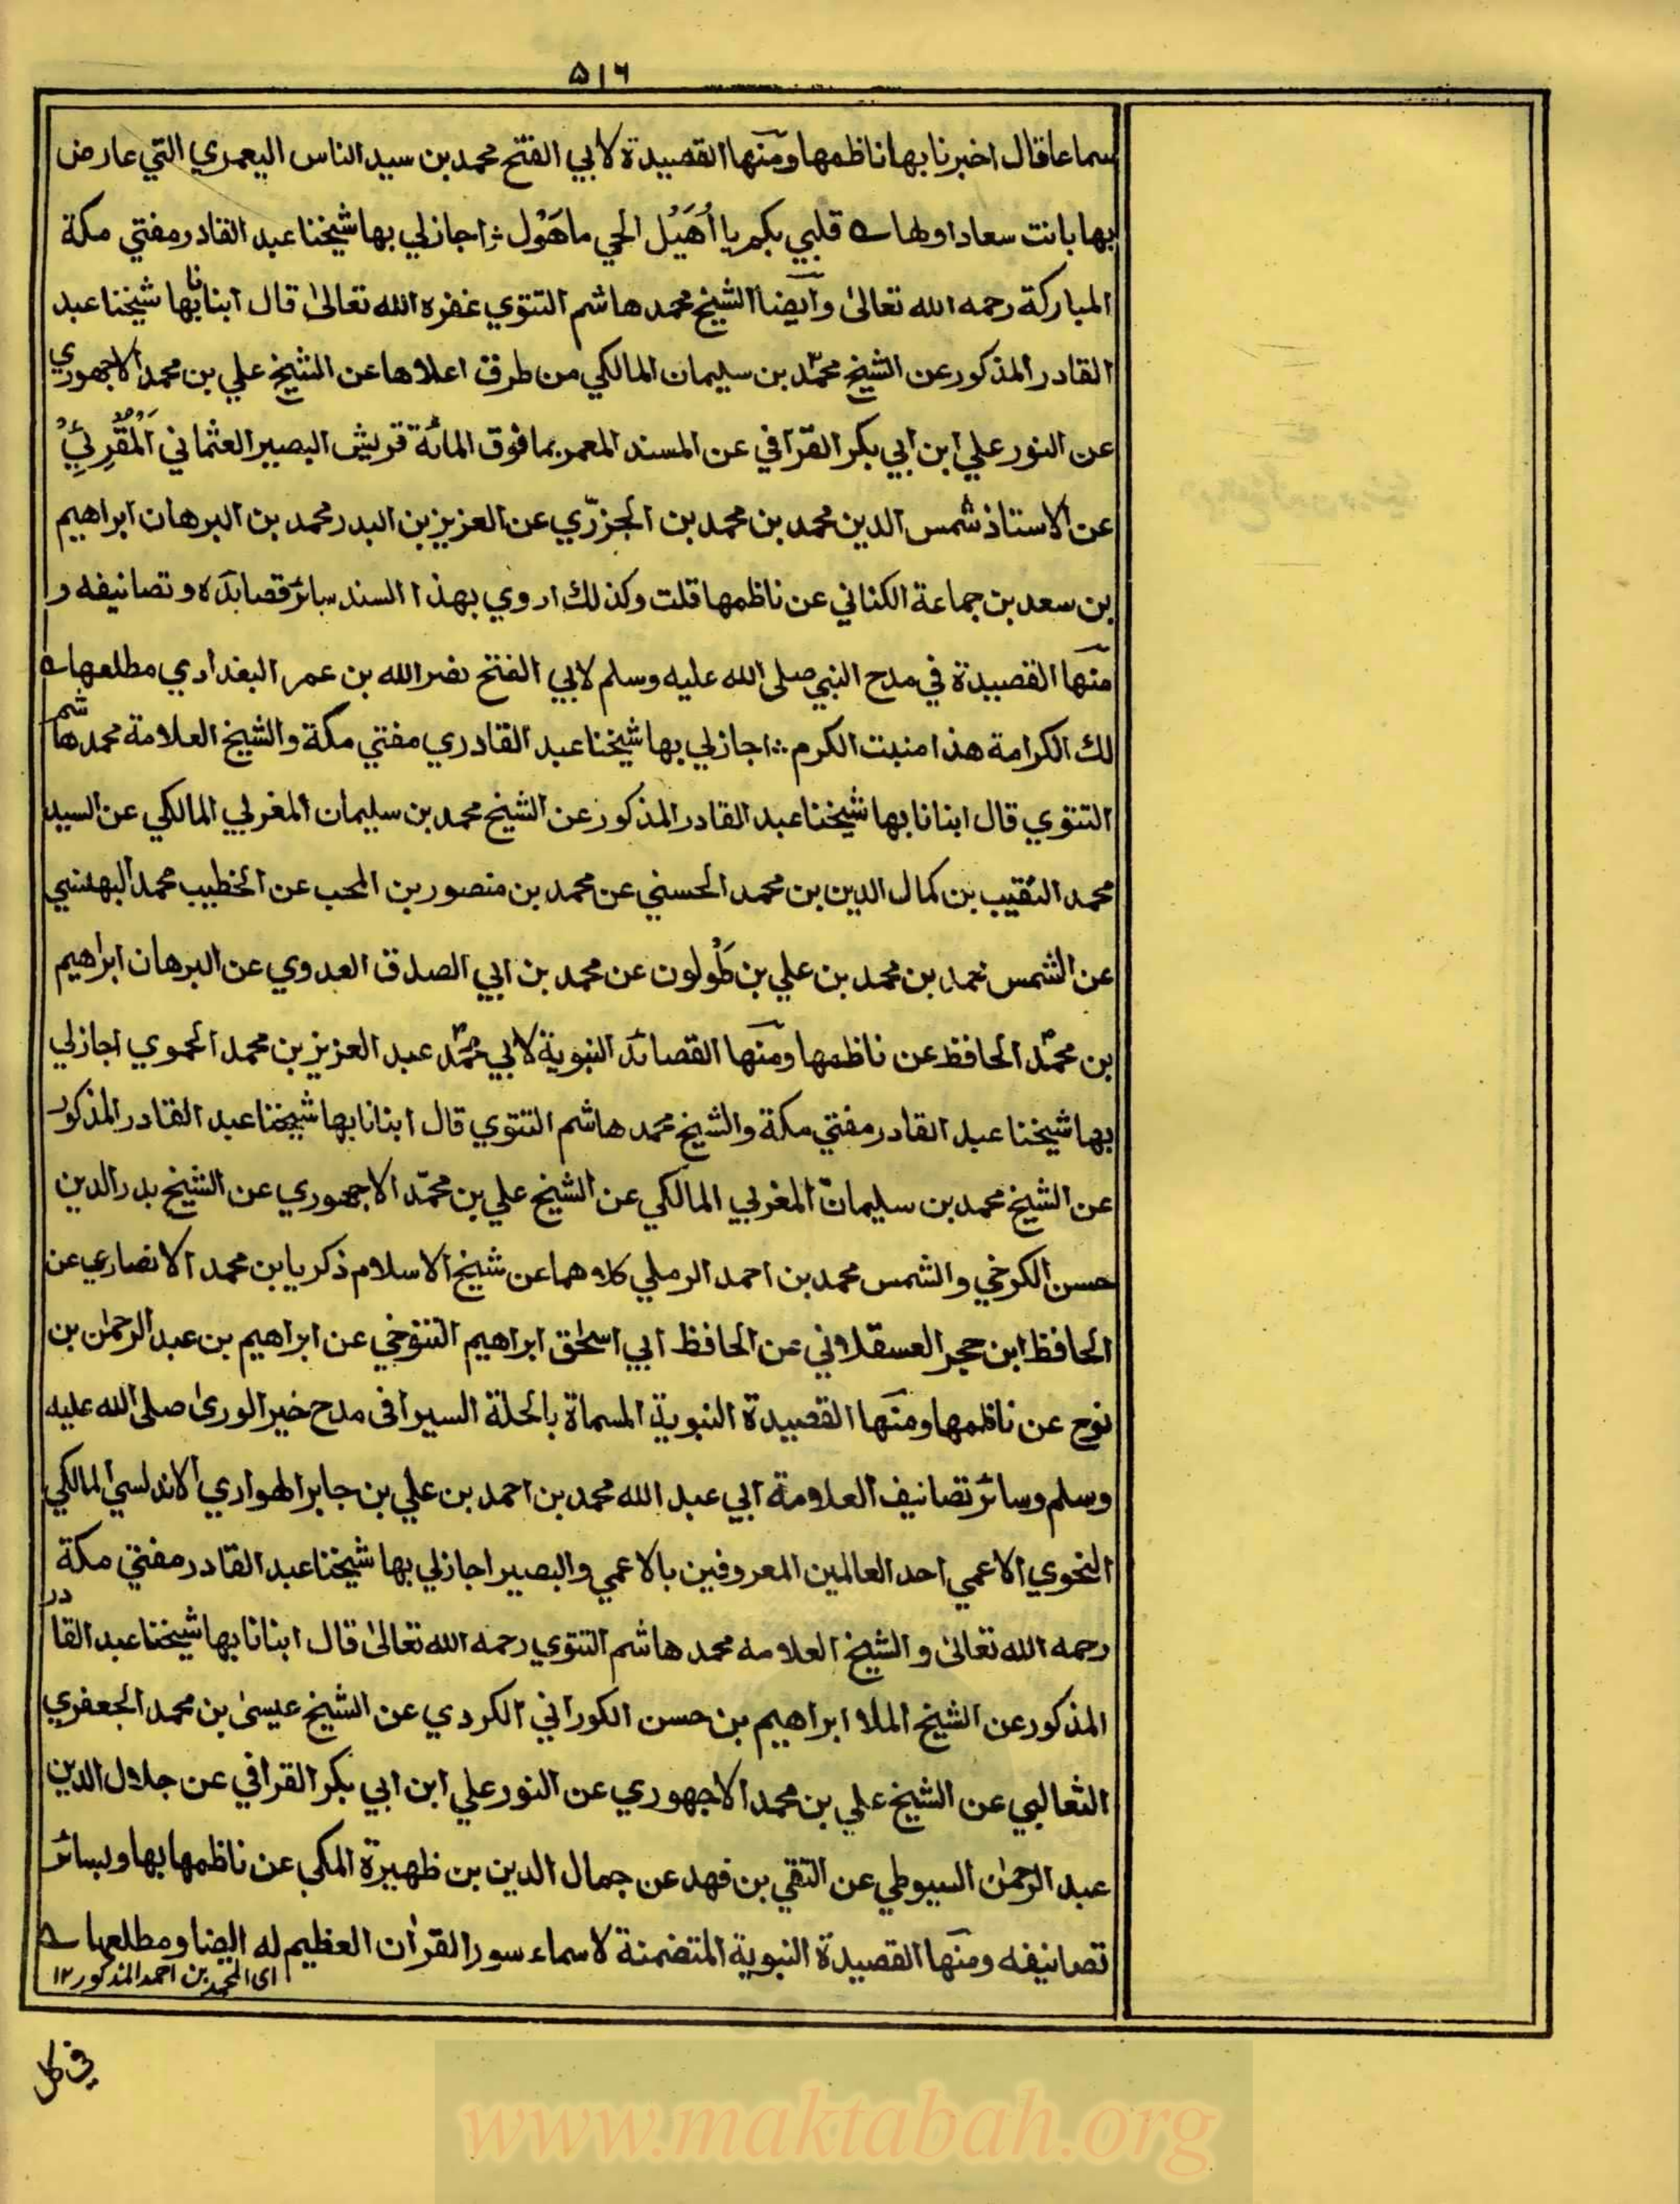 ۵۱۶
سماعا قال اخبرنا بها ناظمها ومنها القصيدة لابي الفتح محمد بن سيد الناس اليعمري التي عارض
بها بانت سعاد اولها قلبي بكم يا أُهَيْل الحي ماهَوْل اجاز لي بها شيخنا عبد القادر مفتي مكة
المباركة رحمه الله تعالىٰ وايضا الشيخ محمد هاشم التتوي غفره الله تعالىٰ قال ابنانا بها شيخنا عبد
القادر المذكور عن الشيخ محمّد بن سليمان المالكي من طرق اعلاها عن الشيخ علي بن محمد الاجهوري
عن النور علي ابن ابي بكر القرافي عن المسند المعمر بما فوق المائة قريش البصير العثماني اَلْمُقْرِئِ
عن الاستاذ شمس الدين محمد بن محمد بن الجزرّي عن العزيز بن البدر محمد بن البرهان ابراهيم
بن سعد بن جماعة الكناني عن ناظمها قلت وكذلك اروي بهذا السند سائر قصائده وتصانيفه و
منها القصيدة في مدح النبي صلى الله عليه وسلم لابي الفتح نصر الله بن عمر البغدادي مطلعها
لك الكرامة هذا منبت الكرم ؞ اجاز لي بها شيخنا عبد القادري مفتي مكة والشيخ العلامة محمد هاشم
التتوي قال ابنانا بها شيخنا عبد القادر المذكور عن الشيخ محمد بن سليمان المغربي المالكي عن السيد
محمد النقيب بن كمال الدين بن محمد الحسني عن محمد بن منصور بن المحب عن الخطيب محمد البهنسي
عن الشمس محمد بن محمد بن علي بن طُولون عن محمد بن ابي الصدق العدوي عن البرهان ابراهيم
بن محمّد الحافظ عن ناظمها ومنها القصائد النبوية لابي محمّد عبد العزيز بن محمد الحموي اجاز لي
بها شيخنا عبد القادر مفتي مكة والشيخ محمد هاشم التتوي قال ابنانا بها شيخنا عبد القادر المذكور
عن الشيخ محمد بن سليمان المغربي المالكي عن الشيخ علي بن محمّد الاجهوري عن الشيخ بدر الدين
حسن الكرخي والشمس محمد بن احمد الرملي كلاهما عن شيخ الاسلام ذكريا بن محمد الانصاري عن
الحافظ ابن حجر العسقلاني عن الحافظ ابي اسحٰق ابراهيم التنوخي عن ابراهيم بن عبد الرحمٰن بن
نوح عن ناظمها ومنها القصيدة النبوية المسماة بالحلة السيرا فى مدح خير الورىٰ صلى الله عليه
وسلم وسائر تصانيف العلامة ابي عبد الله محمد بن احمد بن علي بن جابر الهواري الاندلسي المالكي
النحوي الاعمي احد العالمين المعروفين بالاعمي والبصير اجاز لي بها شيخنا عبد القادر مفتي مكة
رحمه الله تعالىٰ والشيخ العلامه محمد هاشم التتوي رحمه الله تعالىٰ قال ابنانا بها شيخنا عبد القادر
المذكور عن الشيخ الملا ابراهيم بن حسن الكوراني الكردي عن الشيخ عيسىٰ بن محمد الجعفري
الثعالبي عن الشيخ علي بن محمد الاجهوري عن النور علي ابن ابي بكر القرافي عن جلال الدين
عبد الرحمٰن السيوطي عن التقي بن فهد عن جمال الدين بن ظهيرة المكي عن ناظمها بها وبسائر
تصانيفه ومنها القصيدة النبوية المتضمنة لاسماء سور القراٰن العظيم له ايضا ومطلعها
اى المحمد بن احمد المذكور ۱۲
في كل
www.maktabah.org